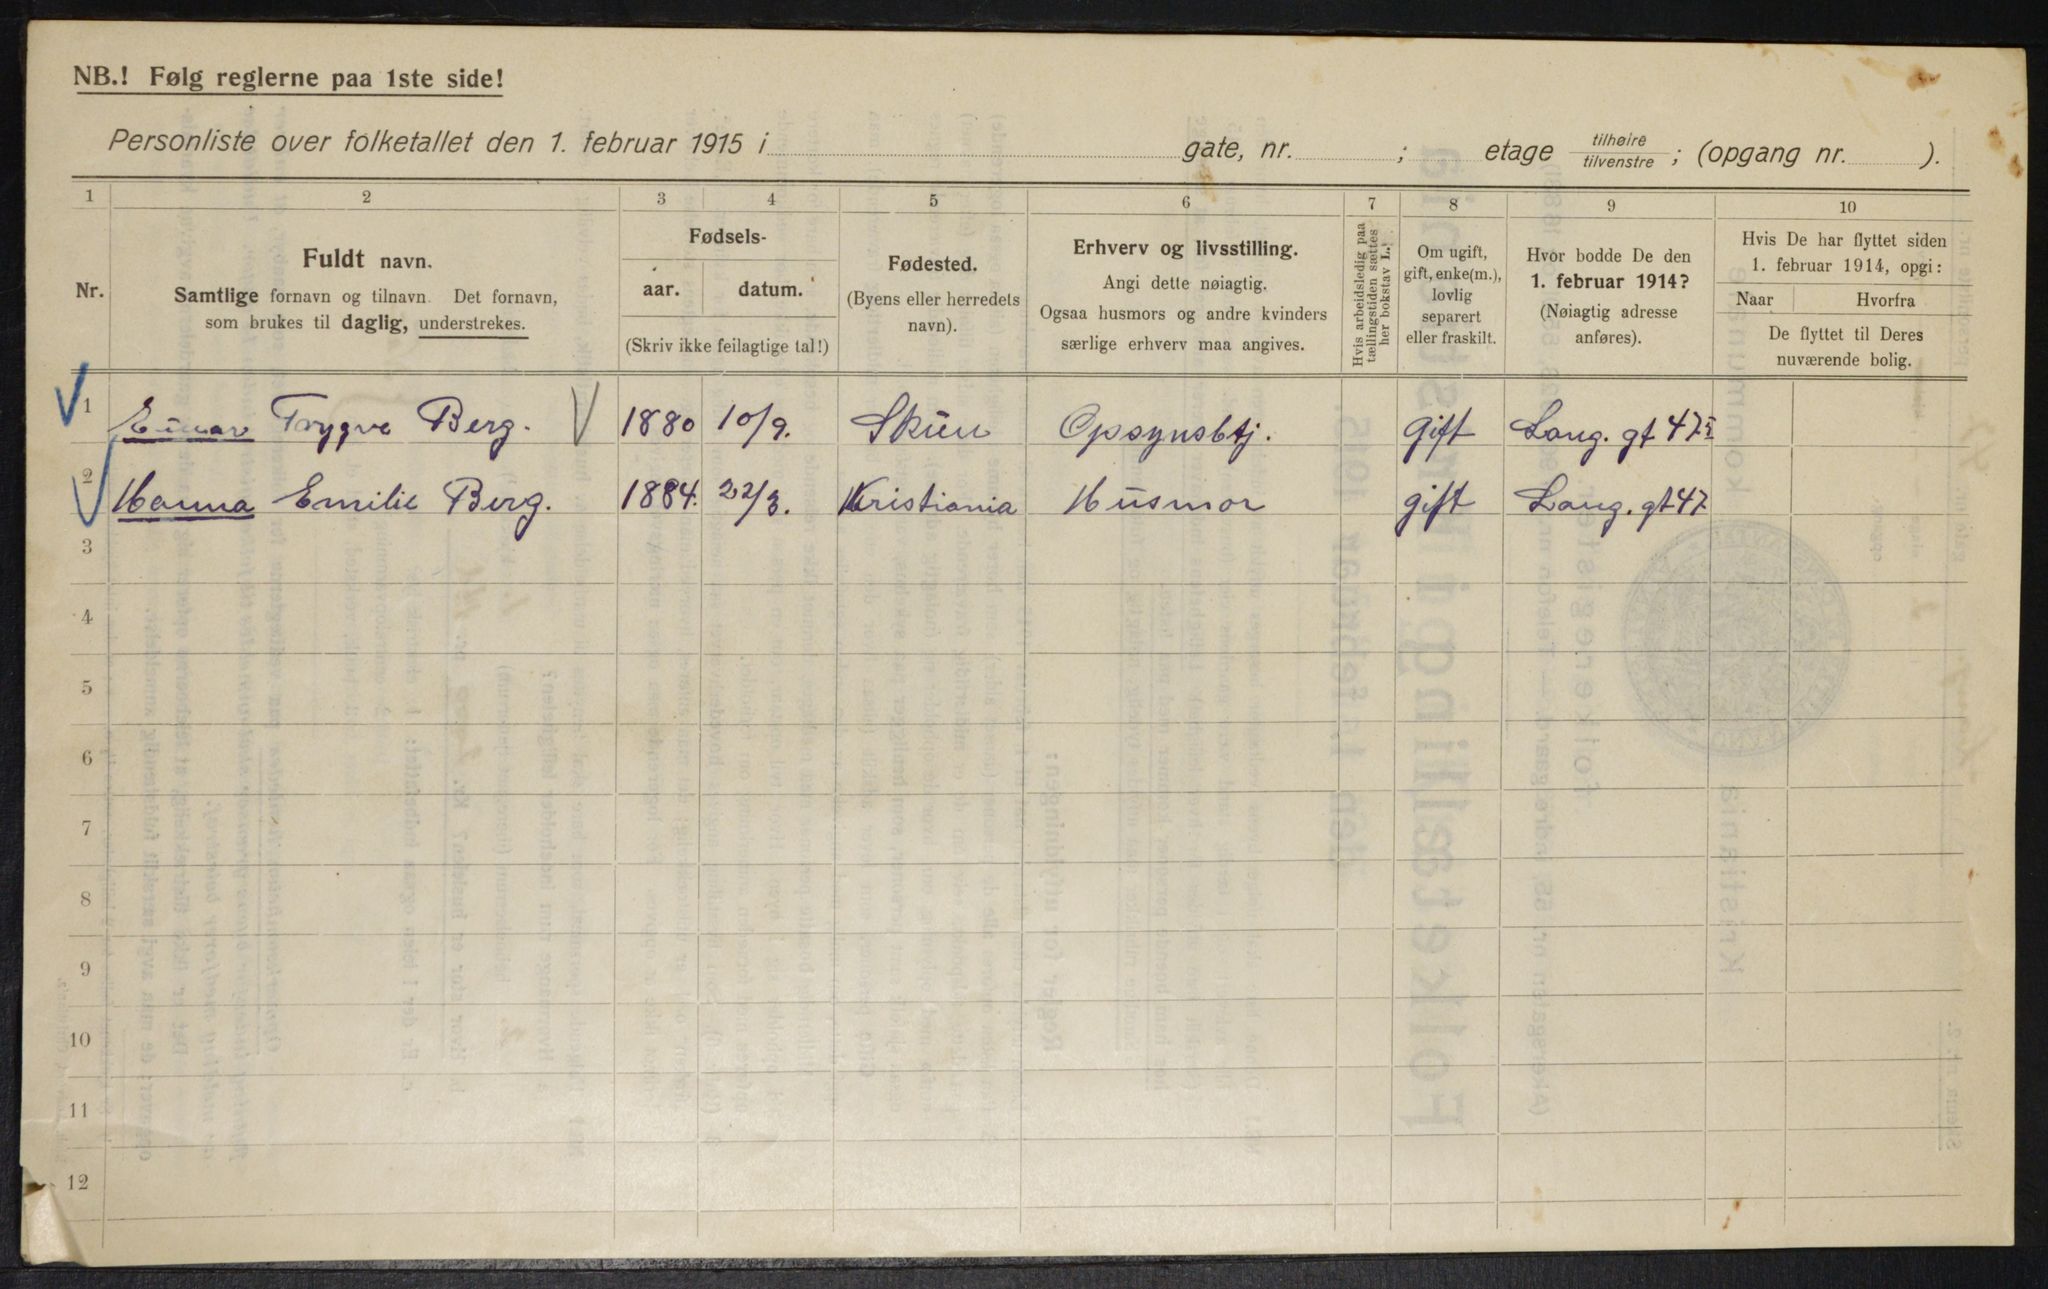 NB.! Følg reglerne paa 1ste side!
Personliste over folketallet den 1. februar 1915 i gate, nr. ; etage tilhøire tilvenstre ; (opgang nr. ).
1 2 3 4 5 6 7 8 9 10
Nr.
Fuldt navn.
Samtlige fornavn og tilnavn. Det fornavn,
som brukes til daglig, understrekes.
Fødsels-
aar. datum.
(Skriv ikke feilagtige tal!)
Fødested.
(Byens eller herredets
navn).
Erhverv og livsstilling.
Angi dette nøiagtig.
Ogsaa husmors og andre kvinders
særlige erhverv maa angives.
Hvis arbeidsledig paa
tællingstiden sættes
her bokstav L.
Om ugift,
gift, enke(m.),
lovlig
separert
eller fraskilt.
Hvor bodde De den
1. februar 1914?
(Nøiagtig adresse
anføres).
Hvis De har flyttet siden
1. februar 1914, opgi:
Naar Hvorfra
De flyttet til Deres
nuværende bolig.
1 Einar Trygve Berg. 1880 10/9. Skien Opsynsbtj. gift Lang. gt 47 I
2 Hanna Emilie Berg. 1884. 22/3. Kristiania Husmor gift Lang. gt 47
3
4
5
6
7
8
9
10
11
12